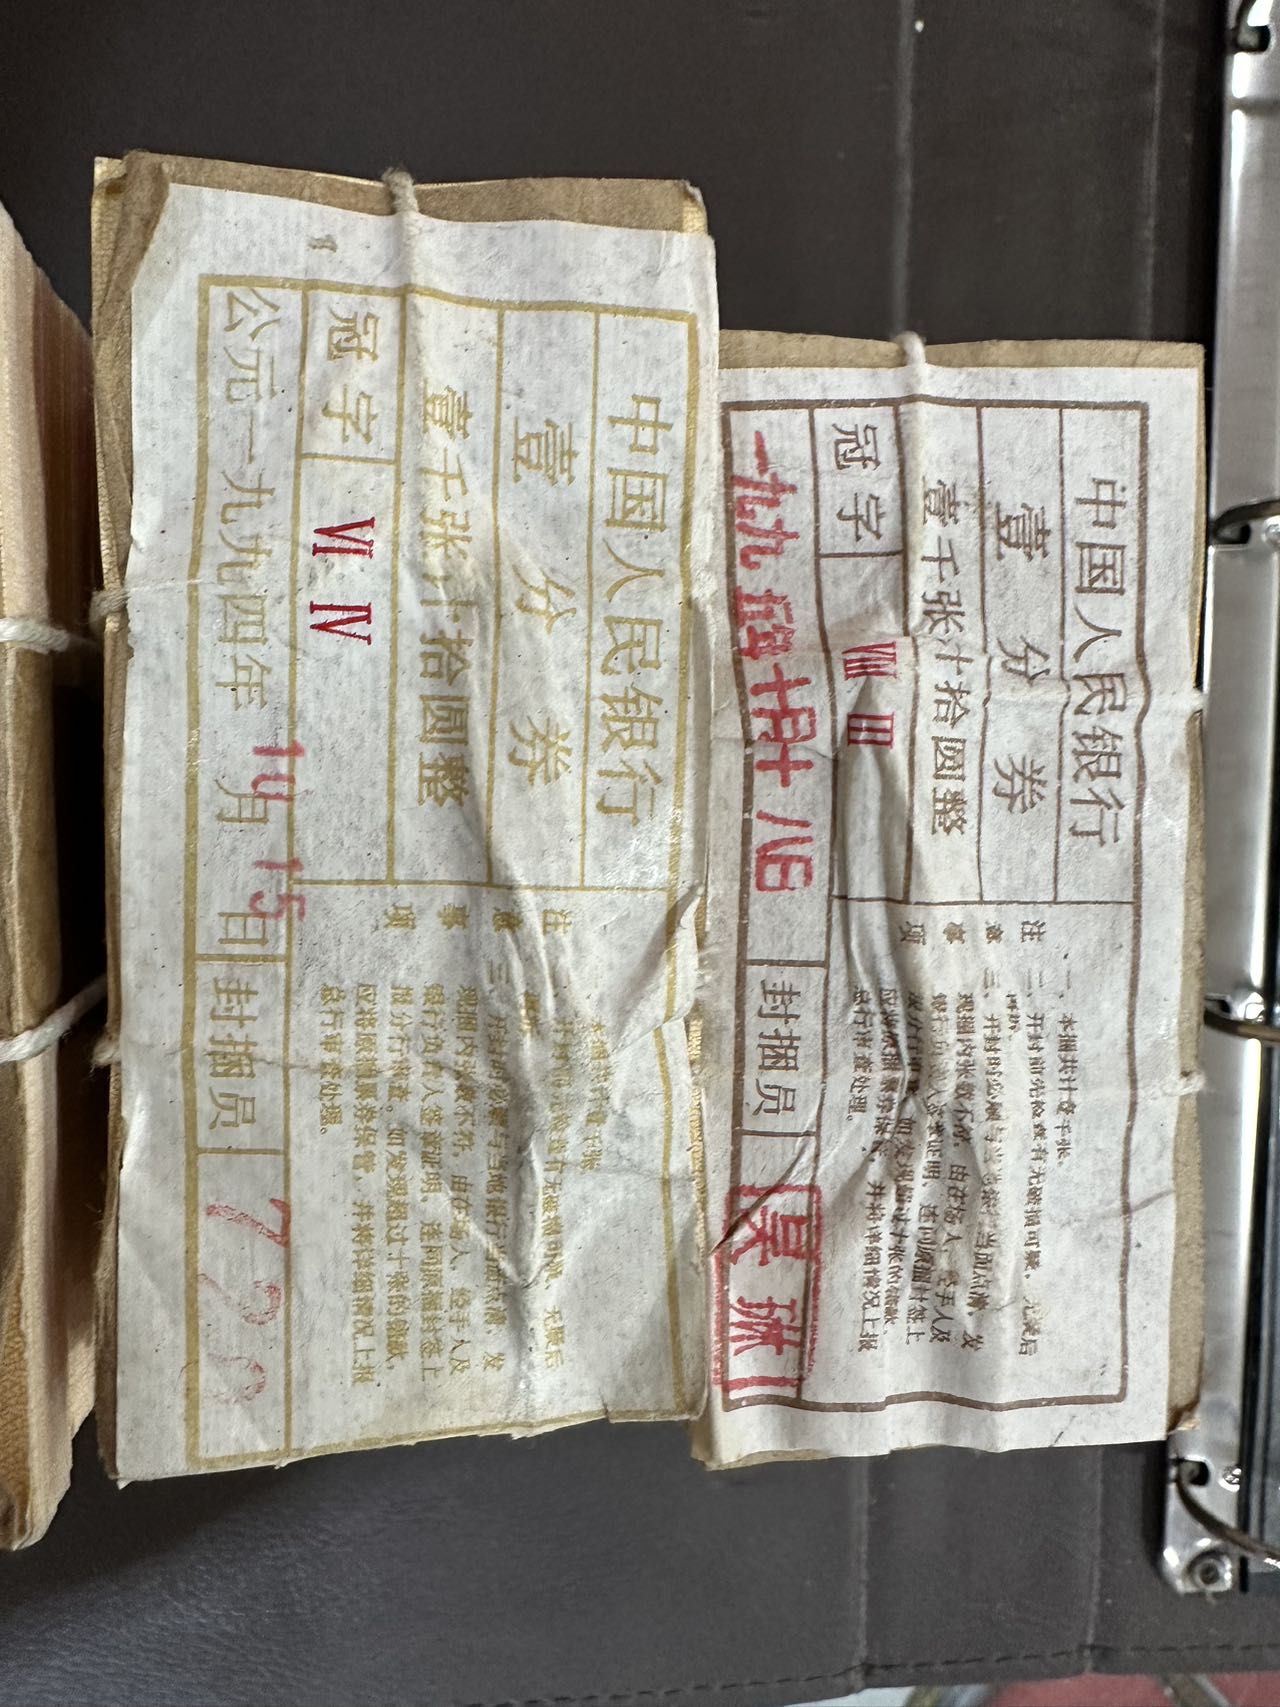 中国人民银行
壹 分 券
壹千张计拾圆整
冠字 VIII III
一九九五年十月十八日 封捆员 吴琳
注意事项
一、本捆共计壹千张。
二、开封前先检查有无破损可疑，无误后
再拆。
三、开封时必须与当地银行当面点清，发
现捆内张数不符，由在场人，经手人及
银行负责人签章证明，连同原捆封签上
报分行审查。如发现超过十张的错款，
应将原捆票券保管，并将详细情况上报
总行审查处理。
中国人民银行
壹 分 券
壹千张计拾圆整
冠字 VI IV
公元一九九四年10月15日 封捆员 728
注意事项
一、本捆共计壹千张。
二、开封前先检查有无破损可疑，无误后
三、开封时必须与当地银行当面点清，发
现捆内张数不符，由在场人，经手人及
银行负责人签章证明，连同原捆封签上
报分行审查。如发现超过十张的错款，
应将原捆票券保管，并将详细情况上报
总行审查处理。